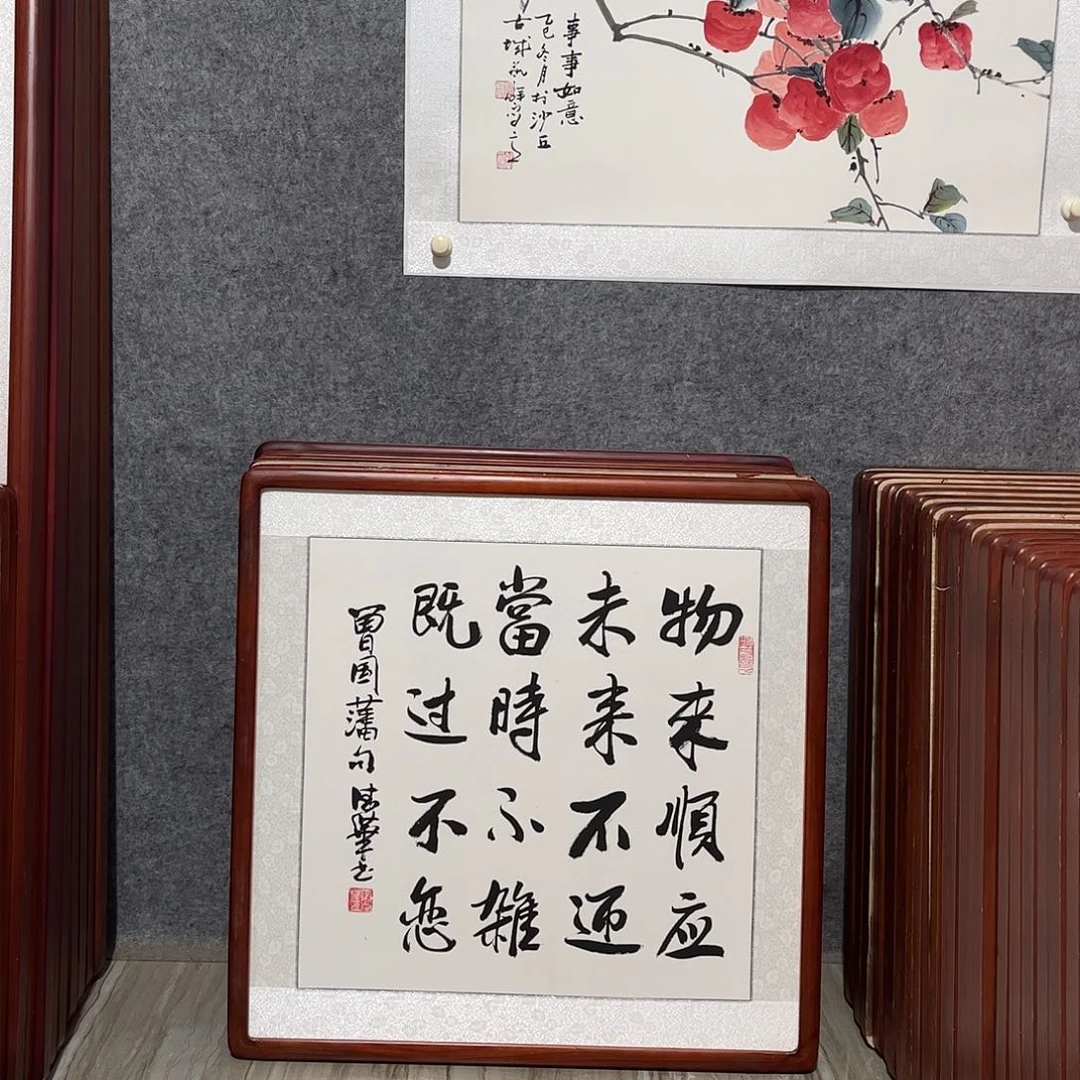 事事如意
乙巳冬月於沙丘
古城
物來順应
未来不迎
當時不雜
既过不恋
曾国藩句